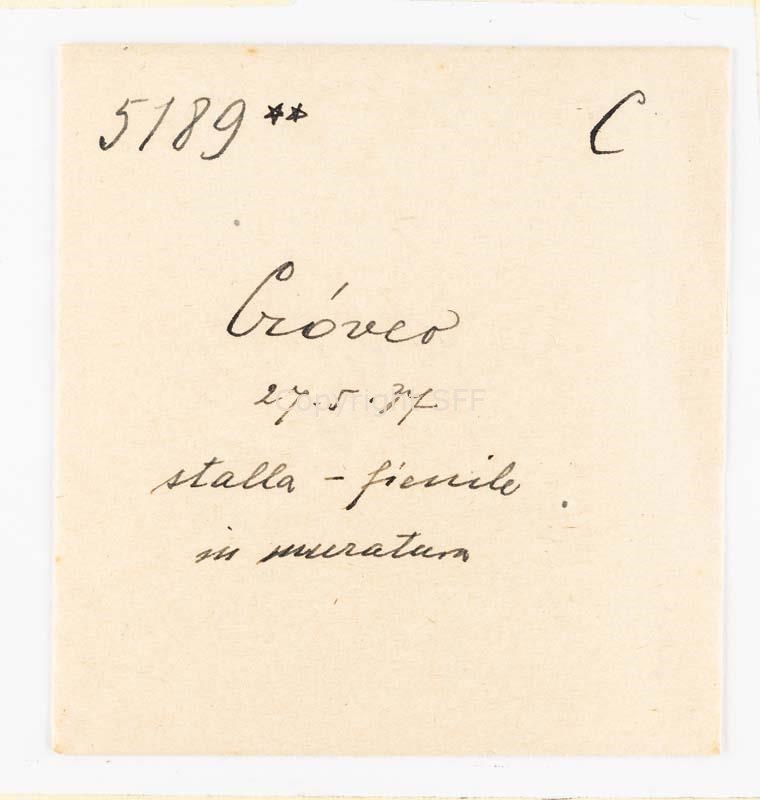 5189** C
Cróveo
27.5.37
Copyright SFF
stalla - fienile
in muratura